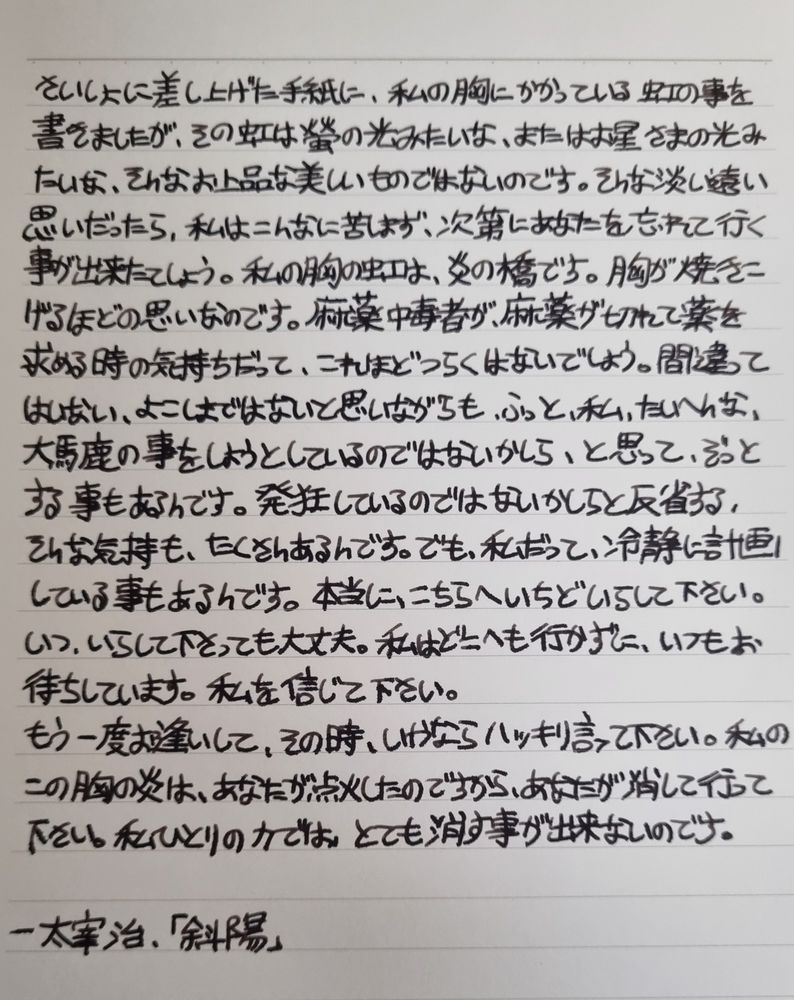 さいしょに差し上げた手紙に、私の胸にかかっている虹の事を
書きましたが、その虹は螢の光みたいな、またはお星さまの光み
たいな、そんなお上品な美しいものではないのです。そんな淡い遠い
思いだったら、私はこんなに苦しまず、次第にあなたを忘れて行く
事が出来たでしょう。私の胸の虹は、炎の橋です。胸が焼きこ
げるほどの思いなのです。麻薬中毒者が、麻薬が切れて薬を
求める時の気持ちだって、これほどつらくはないでしょう。間違って
はいない、よこしまではないと思いながらも、ふっと、私、たいへんな、
大馬鹿の事をしようとしているのではないかしら、と思って、ぞっと
する事もあるんです。発狂しているのではないかしらと反省する、
そんな気持も、たくさんあるんです。でも、私だって、冷静に計画
している事もあるんです。本当に、こちらへいちどいらして下さい。
いつ、いらして下さっても大丈夫。私はどこへも行かずに、いつもお
待ちしています。私を信じて下さい。
もう一度お逢いして、その時、いやならハッキリ言って下さい。私の
この胸の炎は、あなたが点火したのですから、あなたが消して行って
下さい。私ひとりの力では、とても消す事が出来ないのです。
ー太宰治、「斜陽」